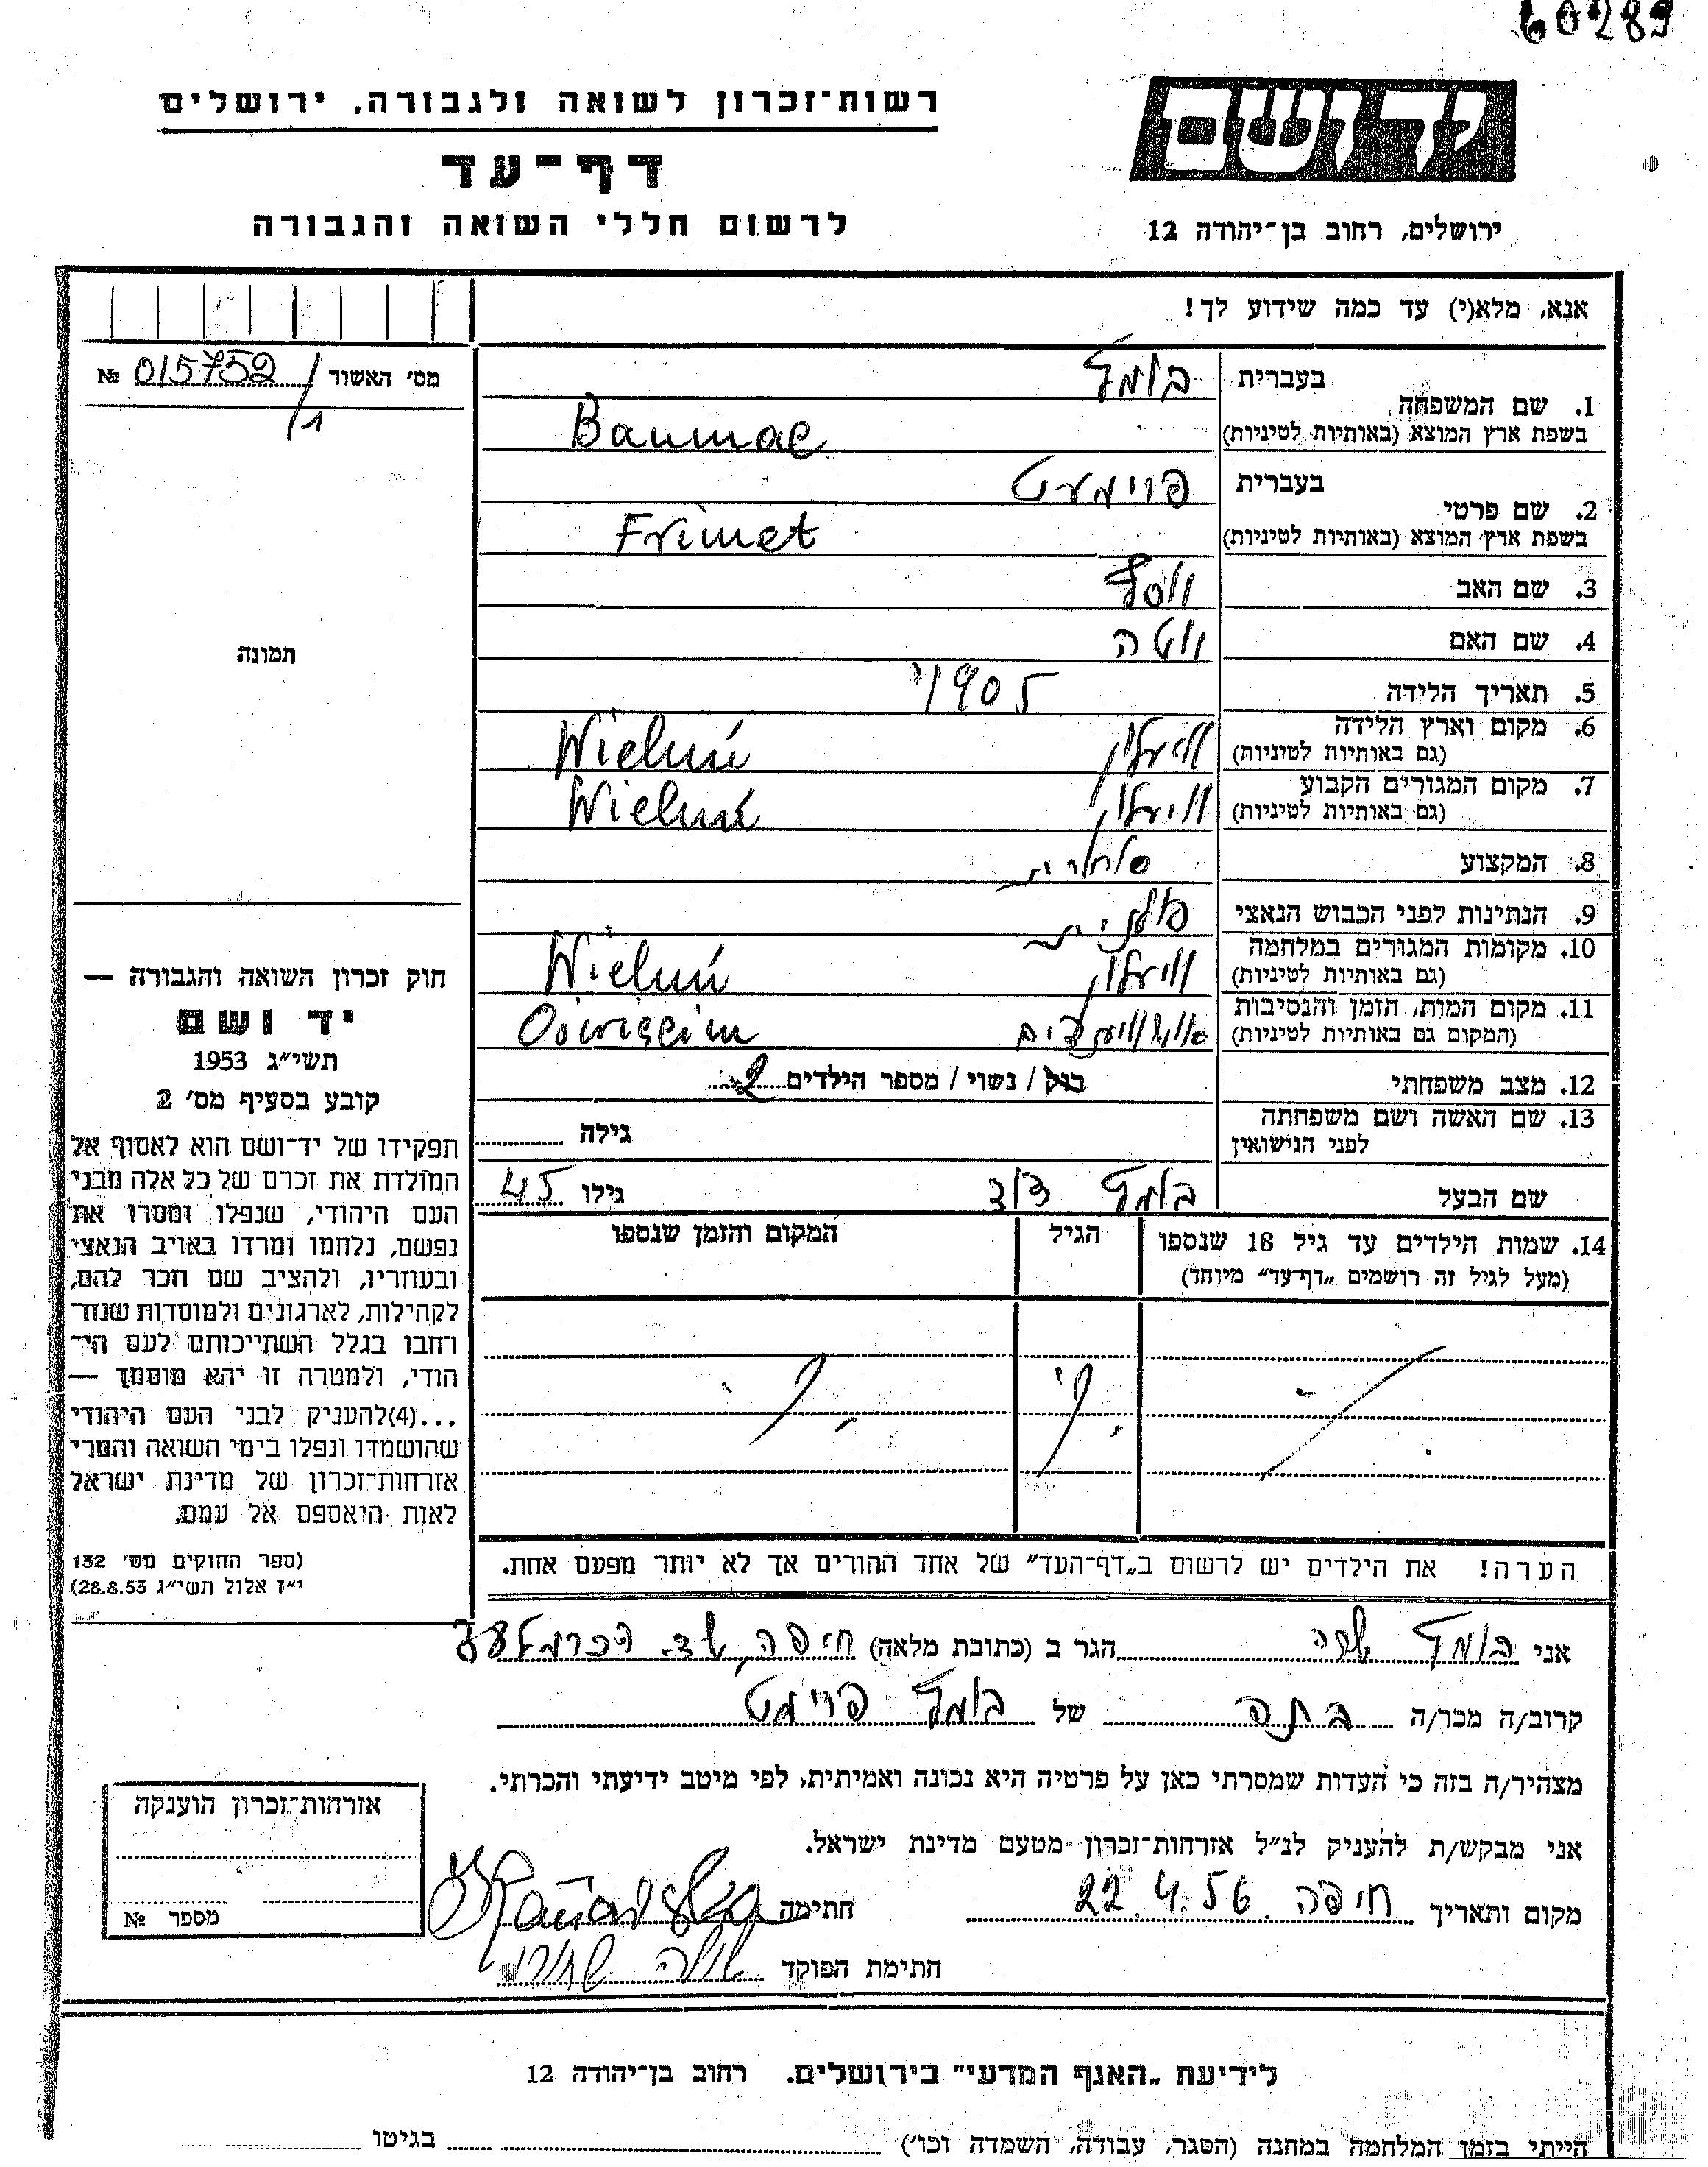 60289
רשות־זכרון לשואה ולגבורה, ירושלים
יד ושם
דף־עד
לרשום חללי השואה והגבורה
ירושלים, רחוב בן־יהודה 12
אנא, מלא(י) עד כמה שידוע לך!
מס׳ האשור № 015752/1
תמונה
1. שם המשפחה בעברית
בומל
בשפת ארץ המוצא (באותיות לטיניות)
Baumac
2. שם פרטי בעברית
פרימעט
בשפת ארץ המוצא (באותיות לטיניות)
Frimet
3. שם האב
4. שם האם
5. תאריך הלידה 1905
6. מקום וארץ הלידה
(גם באותיות לטיניות) וויעלון Wieluń
7. מקום המגורים הקבוע
(גם באותיות לטיניות) וויעלון Wieluń
8. המקצוע
9. הנתינות לפני הכבוש הנאצי פולנית
10. מקומות המגורים במלחמה
(גם באותיות לטיניות) וויעלון Wieluń
11. מקום המות, הזמן והנסיבות
(המקום גם באותיות לטיניות)
12. מצב משפחתי רוק / נשוי / מספר הילדים 2
13. שם האשה ושם משפחתה
לפני הנישואין גילה
שם הבעל בומל דוד גילו 45
14. שמות הילדים עד גיל 18 שנספו
(מעל לגיל זה רושמים „דף־עד” מיוחד)
הגיל
המקום והזמן שנספו
הערה! את הילדים יש לרשום ב„דף־העד” של אחד ההורים אך לא יותר מפעם אחת.
חוק זכרון השואה והגבורה —
יד ושם
תשי״ג 1953
קובע בסעיף מס׳ 2
תפקידו של יד־ושם הוא לאסוף אל
המולדת את זכרם של כל אלה מבני
העם היהודי, שנפלו ומסרו את
נפשם, נלחמו ומרדו באויב הנאצי
ובעוזריו, ולהציב שם וזכר להם,
לקהילות, לארגונים ולמוסדות שנח־
רחבו בגלל השתייכותם לעם הי־
הודי, ולמטרה זו יהא מוסמך —
...(4)להעניק לבני העם היהודי
שהושמדו ונפלו בימי השואה והמרי
אזרחות־זכרון של מדינת ישראל
לאות היאספם אל עמם.
(ספר החוקים מס׳ 132
י״ז אלול תשי״ג 28.8.53)
אני בומל שרה הגר ב (כתובת מלאה) חיפה, שד. הכרמל
קרוב/ה מכר/ה בתה של בומל פרימט
מצהיר/ה בזה כי העדות שמסרתי כאן על פרטיה היא נכונה ואמיתית, לפי מיטב ידיעתי והכרתי.
אני מבקש/ת להעניק לנ״ל אזרחות־זכרון מטעם מדינת ישראל.
מקום ותאריך חיפה 22.4.56 חתימה
חתימת הפוקד
אזרחות־זכרון הוענקה
מספר №
לידיעת „האגף המדעי” בירושלים. רחוב בן־יהודה 12
הייתי בזמן המלחמה במחנה (הסגר, עבודה, השמדה וכו׳) בגיטו